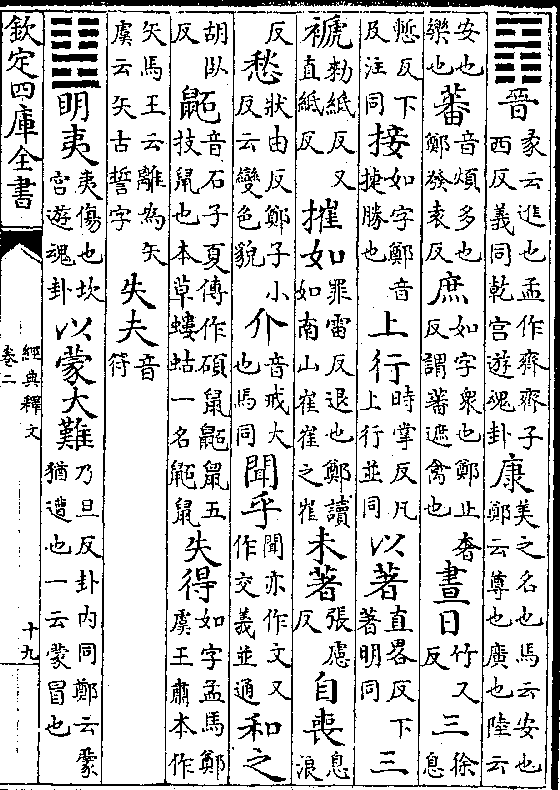 ䷢晉彖云進也孟作齊齊子西反義同乾宫遊魂卦康美之名也馬云安也鄭云尊也廣也陸云
安也樂也蕃音煩多也鄭發袁反庶如字衆也鄭止奢反謂蕃遮禽也晝日竹又反三徐息
慙反下及注同接如字鄭音捷勝也上行時掌反凡上行並同以著直畧反下著明同三
褫敕紙反又直紙反摧如罪雷反退也鄭讀如南山崔崔之崔未著張慮反自喪息浪
反愁狀由反鄭子小反云變色貌介音戒大也馬同聞乎聞亦作文又作交義並通和之
胡臥反鼫音石子夏傳作碩鼠鼫鼠五技鼠也本草螻蛄一名鼫鼠失得如字孟馬鄭虞王肅本作
矢馬王云離為矢虞云矢古誓字失夫音符
䷣明夷夷傷也坎宫遊魂卦以蒙大難乃旦反卦内同鄭云蒙猶遭也一云蒙冒也
欽定四庫全書
經典釋文
卷二
十九